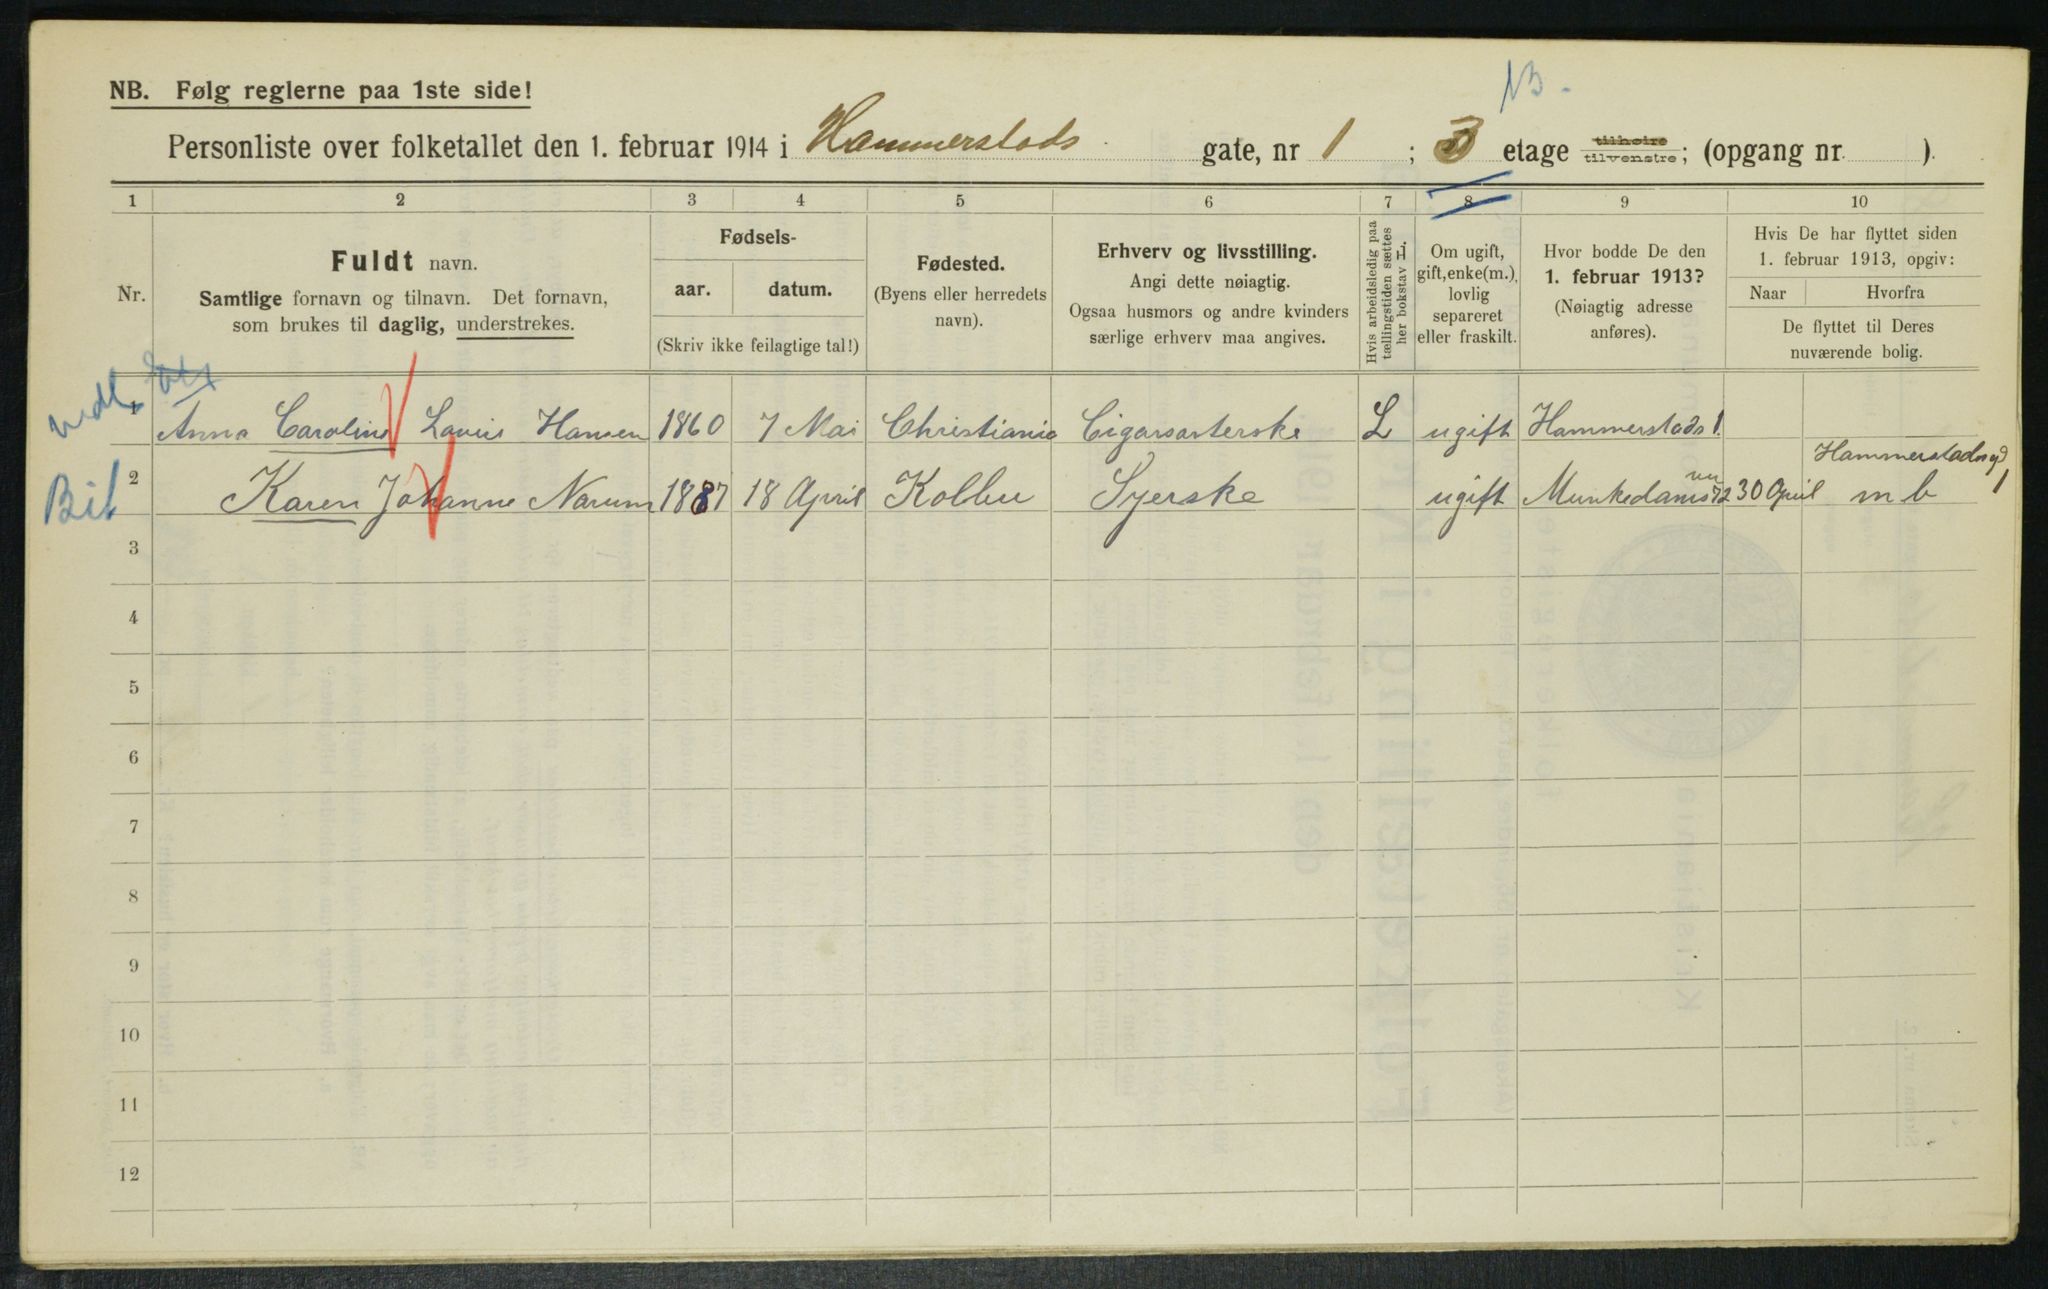 NB.
NB. Følg reglerne paa 1ste side!
Personliste over folketallet den 1. februar 1914 i Hammerstads gate, nr 1 ; 3 etage tilhøire tilvenstre; (opgang nr. ).
1 2 3 4 5 6 7 8 9 10
Nr.
Fuldt navn.
Samtlige fornavn og tilnavn. Det fornavn,
som brukes til daglig, understrekes.
Fødsels-
aar. datum.
(Skriv ikke feilagtige tal!)
Fødested.
(Byens eller herredets
navn).
Erhverv og livsstilling.
Angi dette nøiagtig.
Ogsaa husmors og andre kvinders
særlige erhverv maa angives.
Hvis arbeidsledig paa
tællingstiden sættes
her bokstav L.
Om ugift,
gift, enke(m.),
lovlig
separeret
eller fraskilt.
Hvor bodde De den
1. februar 1913?
(Nøiagtig adresse
anføres).
Hvis De har flyttet siden
1. februar 1913, opgiv:
Naar Hvorfra
De flyttet til Deres
nuværende bolig.
1 Anna Caroline Lovise Hansen 1860 7 Mai Christiania Cigararterske L ugift Hammerstads 1.
Bil 2 Karen Johanne Narum 1887 18 April Kolbu Syerske ugift Munkedamsv 72 30 April Hammerstadsgd 1 m b
3
4
5
6
7
8
9
10
11
12